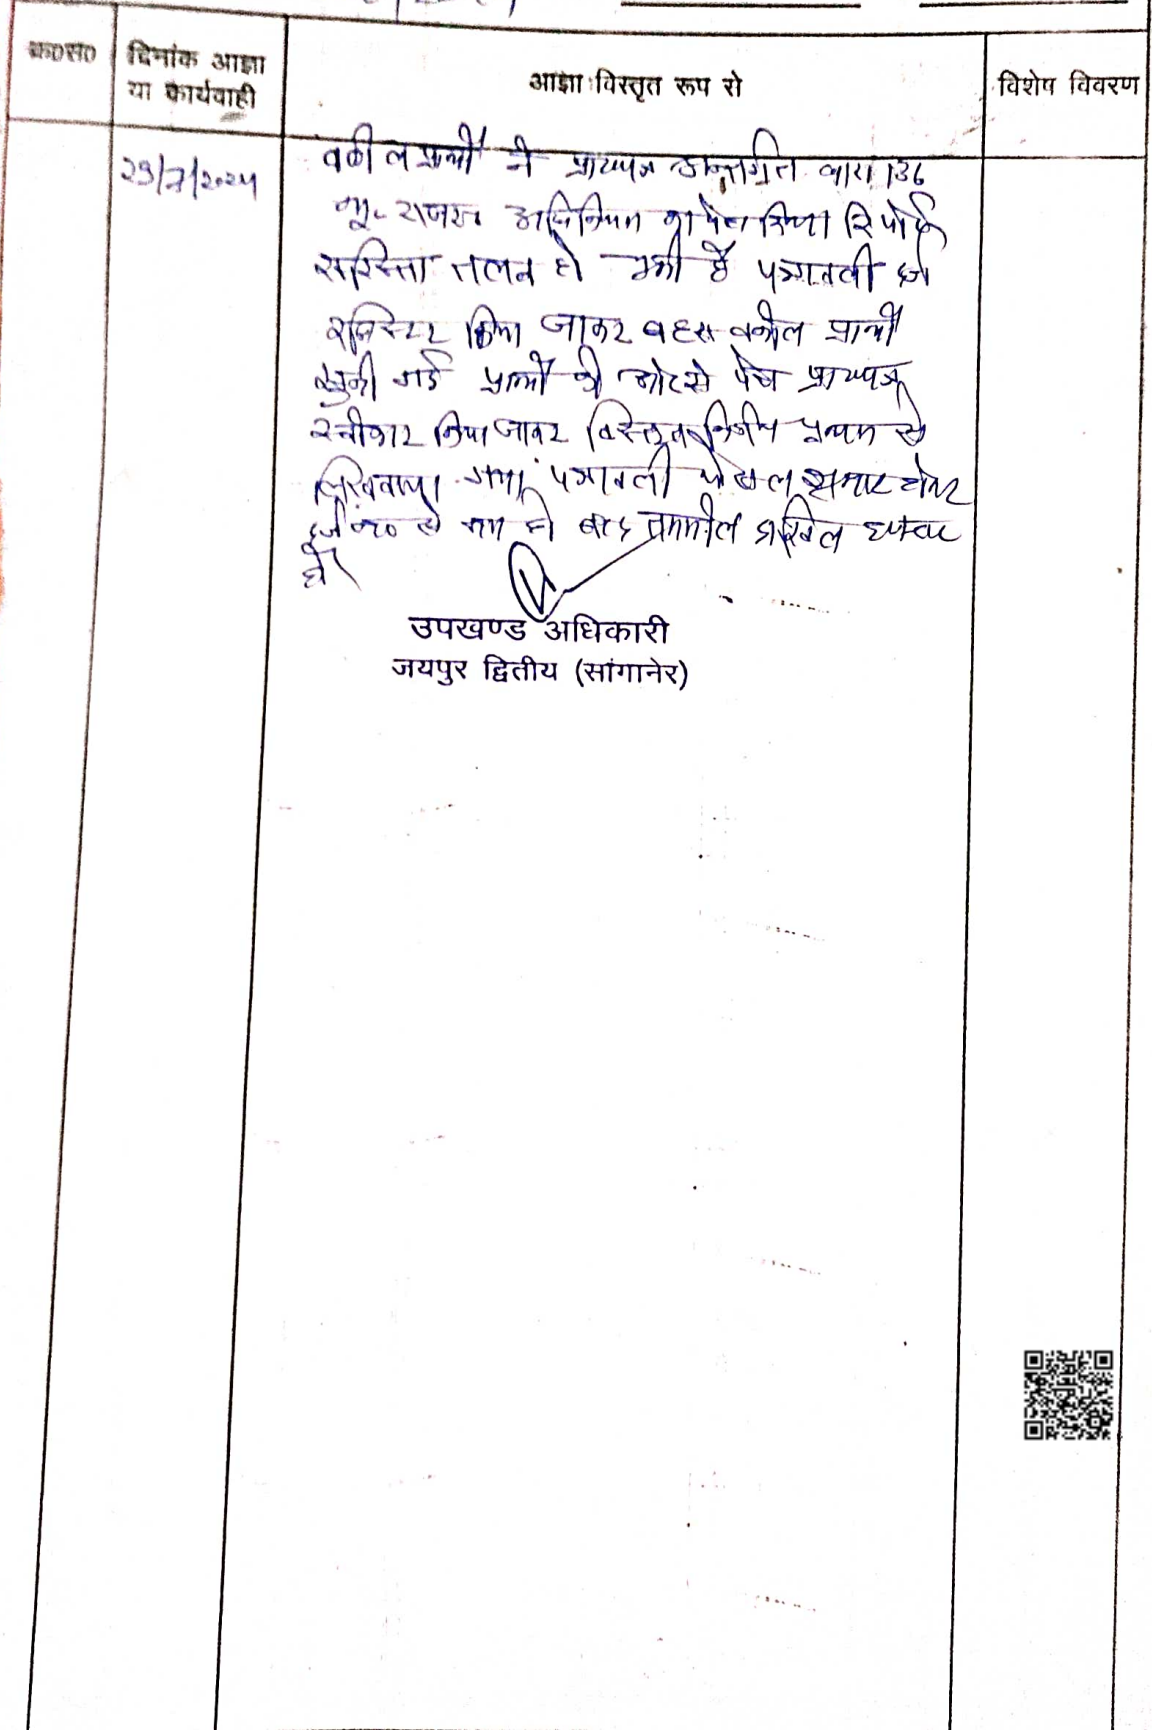 क्र0सं0 दिनांक आज्ञा या कार्यवाही आज्ञा विस्तृत रूप से विशेष विवरण
23/7/2024
वकील प्रार्थी ने प्रा०पत्र अन्तर्गत धारा 136
भू- राजस्व अधिनियम का पेश किया रिपोर्ट
सरिस्ता तलब हो चुकी है पत्रावली दर्ज
रजिस्टर किया जाकर बहस वकील प्रार्थी
सुनी गई प्रार्थी की ओर से पेश प्रा०पत्र
स्वीकार किया जाकर विस्तृत निर्णय पृथक से
लिखवाया गया पत्रावली फैसल शुमार होकर
दर्ज नं० से कम हो बाद तकमील दाखिल दफ्तर
हो।
उपखण्ड अधिकारी
जयपुर द्वितीय (सांगानेर)